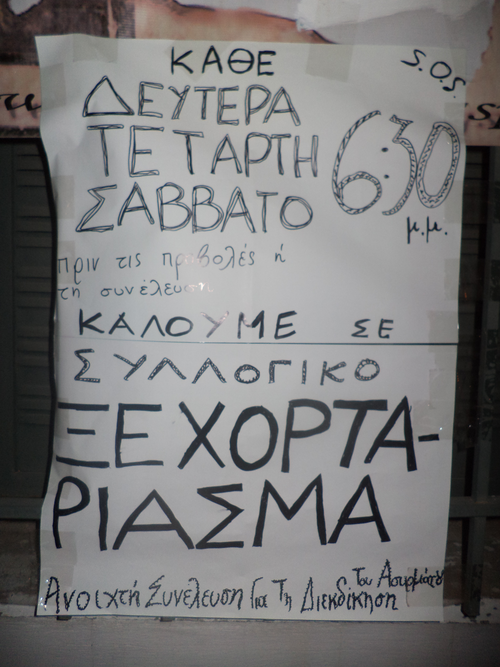 S.O.S.
ΚΑΘΕ
ΔΕΥΤΕΡΑ
ΤΕΤΑΡΤΗ
ΣΑΒΒΑΤΟ
6:30
μ.μ.
πριν τις προβολές ή
τη συνέλευση
ΚΑΛΟΥΜΕ ΣΕ
ΣΥΛΛΟΓΙΚΟ
ΞΕΧΟΡΤΑ-
ΡΙΑΣΜΑ
Ανοιχτή Συνέλευση Για Τη Διεκδίκηση
Του Ασυρμάτου